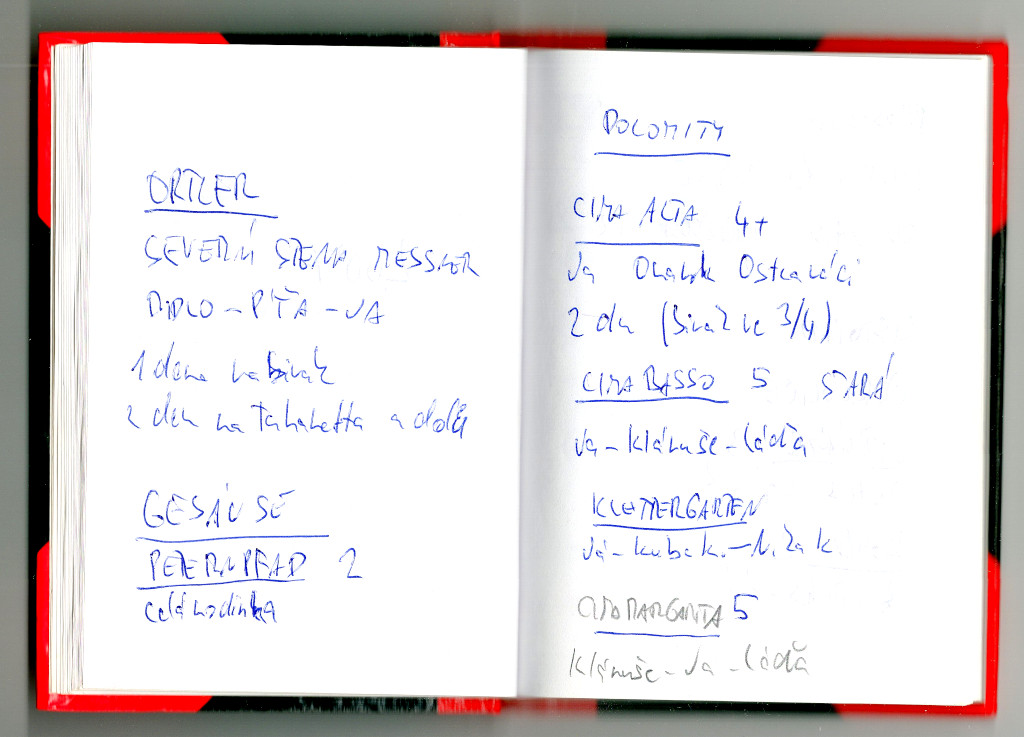 ORTLER
SEVERNÍ STENA MESSNER
DIDLO - PÍŤA - JA
1 den na bivak
2 den na Tabaretta a dolů
GESÄUSE
PETERNPFAD 2
celá rodinka
DOLOMITY
CIMA ALTA 4+
Ja Ostraváci
2 dn (Bivak ve 3/4)
CIMA BASSO 5 STARÁ
Ja - klánuše - Láďa
KLETTERGARTEN
Já - kuba k. - N. Žák
5
klánuše - Ja - Láďa